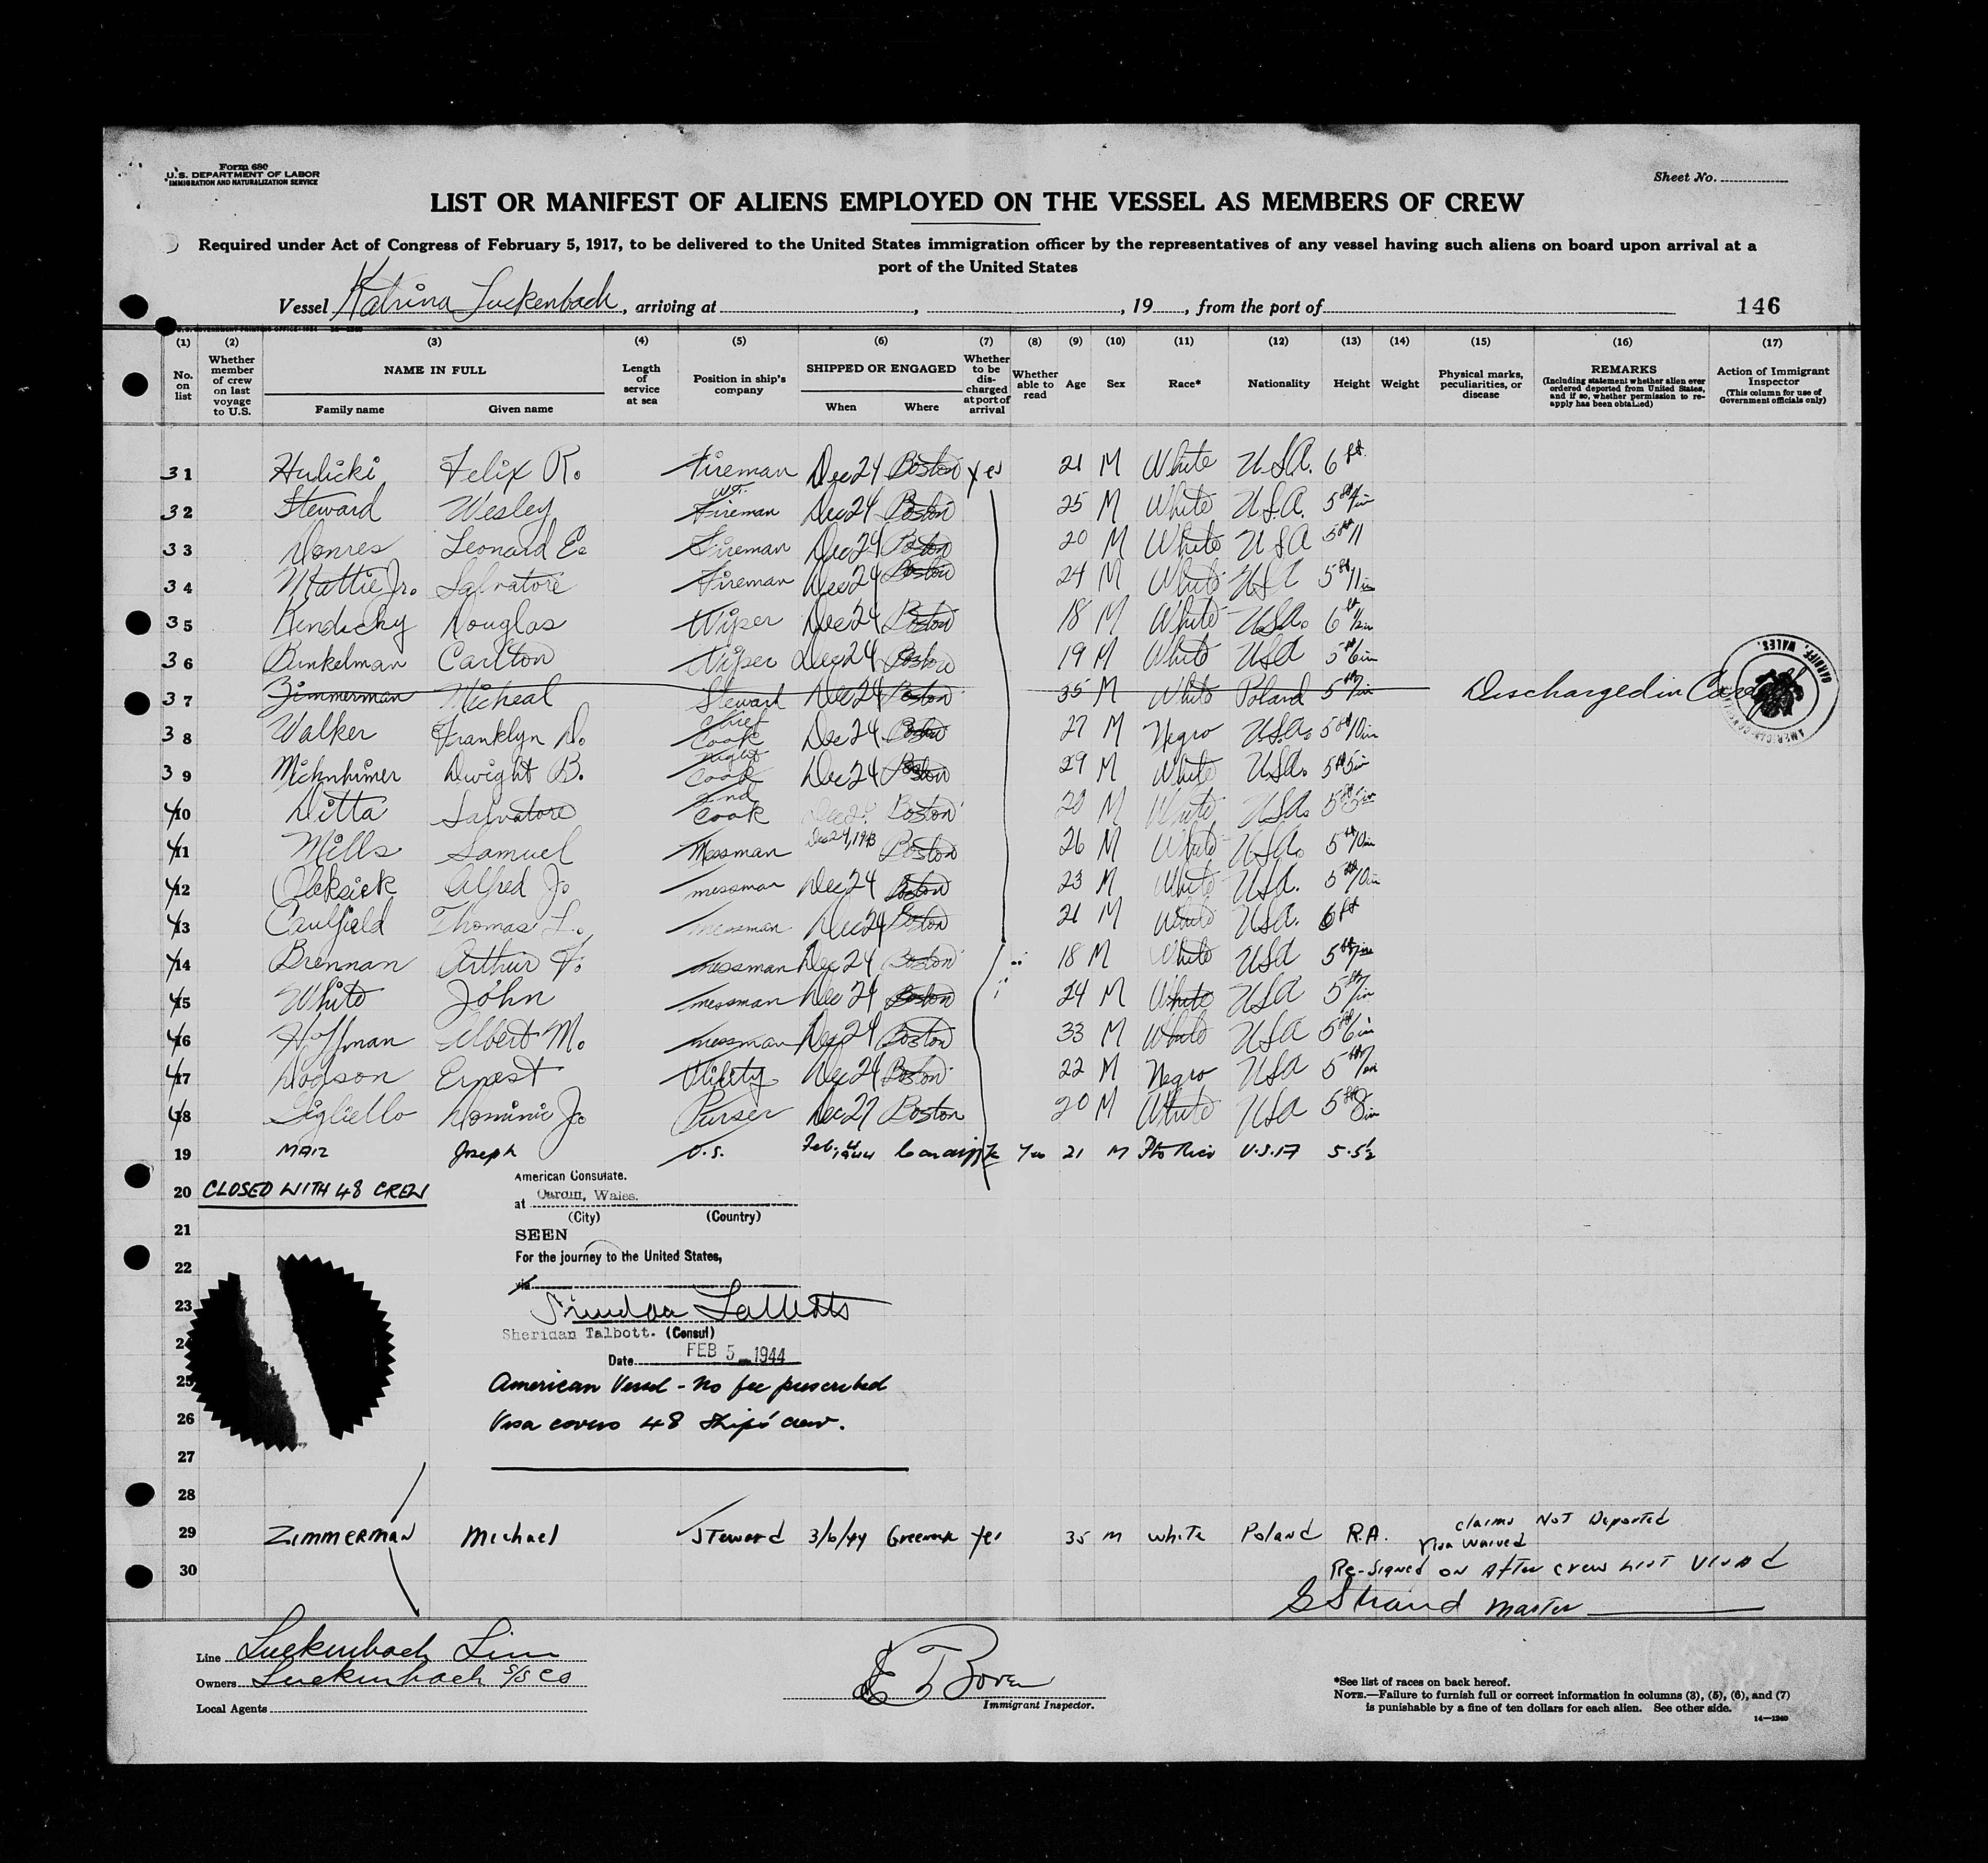 Form 680
U.S. DEPARTMENT OF LABOR
IMMIGRATION AND NATURALIZATION SERVICE
Sheet No.
LIST OR MANIFEST OF ALIENS EMPLOYED ON THE VESSEL AS MEMBERS OF CREW
Required under Act of Congress of February 5, 1917, to be delivered to the United States immigration officer by the representatives of any vessel having such aliens on board upon arrival at a
port of the United States
Vessel Katrina Luckenbach, arriving at , , 19 , from the port of 146
(1) (2) (3) (4) (5) (6) (7) (8) (9) (10) (11) (12) (13) (14) (15) (16) (17)
No. on list
Whether member of crew on last voyage to U.S.
NAME IN FULL
Family name Given name
Length of service at sea
Position in ship's company
SHIPPED OR ENGAGED
When Where
Whether to be discharged at port of arrival
Whether able to read
Age
Sex
Race*
Nationality
Height
Weight
Physical marks, peculiarities, or disease
REMARKS
(Including statement whether alien ever ordered deported from United States, and if so, whether permission to re-apply has been obtained)
Action of Immigrant Inspector
(This column for use of Government officials only)
31 Hulicki Felix R. Fireman Dec 24 Boston Yes 21 M White U.S.A. 6 ft.
32 Steward Wesley W.T. Fireman Dec 24 Boston 25 M White U.S.A.
33 Leonard E. Fireman Dec 24 Boston 20 M White USA 5 ft 11
34 Mattie Jr. Salvatore Fireman Dec 24 Boston 24 M White USA 5 ft 11 in
35 Douglas Wiper Dec 24 Boston 18 M White USA.
36 Bunkelman Carlton Wiper Dec 24 Boston 19 M White USA 5 ft 6 in
37 Zimmerman Micheal Stewart Dec 24 Boston 35 M White Poland 5 ft 7 in Discharged in
38 Walker Franklyn D. Chief Cook Dec 24 Boston 27 M Negro U.S.A. 5 ft 10 in
39 Dwight B. Night Cook Dec 24 Boston 29 M White USA. 5 ft 5 in
40 Ditta Salvatore 2nd Cook Dec 24 Boston 20 M White USA.
41 Mills Samuel Messman Dec 24, 1943 Boston 26 M White USA. 5 ft 10 in
42 Oleksick Alfred J. messman Dec 24 Boston 23 M White USA. 5 ft 10 in
43 Caulfield Thomas L. messman Dec 24 Boston 21 M White USA. 6 ft
44 Brennan Arthur F. messman Dec 24 Boston 18 M White USA
45 White John messman Dec 24 Boston 24 M White USA
46 Hoffman Albert M. messman Dec 24 Boston 33 M White USA 5 ft 6 in
47 Dodson Ernest Utility Dec 24 Boston 22 M Negro USA
48 Gigliello Dominic J. Purser Dec 27 Boston 20 M White USA 5 ft 8 in
19 Joseph O.S. Feb. Yes 21 M Pto Rico U.S.A 5-5½
20 CLOSED WITH 48 CREW
American Consulate.
at Cardiff, Wales.
(City) (Country)
21
SEEN
For the journey to the United States,
22
via
23
Sheridan Talbott
Sheridan Talbott. (Consul)
24
Date FEB 5 1944
25 American Vessel - No fee prescribed
26 Visa covers 48 Ship's crew.
27
28
29 ZIMMERMAN Michael Steward 3/6/44 Yes 35 M White Poland R.A. claims NOT Deported
Visa Waived
30 Re-signed on After crew LIST VISAd
Master
CARDIFF, WALES.
Line Luckenbach Line
Owners Luckenbach S/S Co
Local Agents
Immigrant Inspector.
*See list of races on back hereof.
NOTE.—Failure to furnish full or correct information in columns (3), (5), (6), and (7)
is punishable by a fine of ten dollars for each alien. See other side.
14—1240